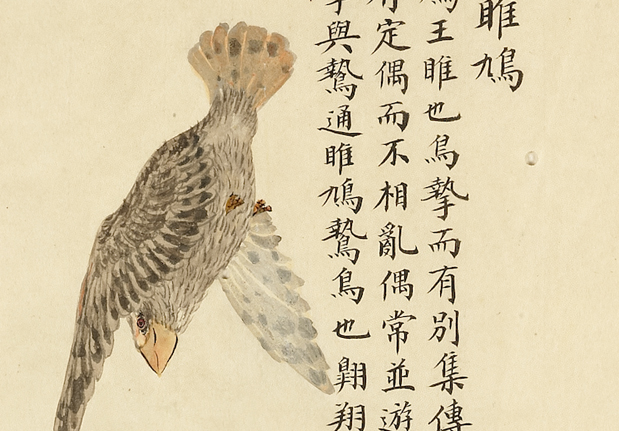 雎鳩
王雎也鳥摯而有別集傳
定偶而不相亂偶常並遊
與鷙通雎鳩鷙鳥也翺翔